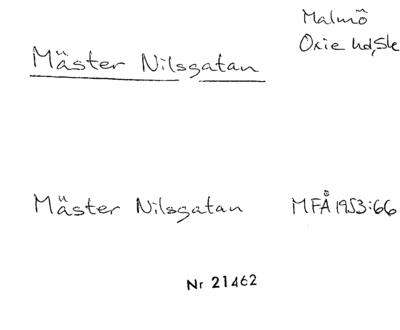 Malmö
Oxie hd, Sk
Mäster Nilsgatan
Mäster Nilsgatan MFÅ 1953:66
Nr 21462